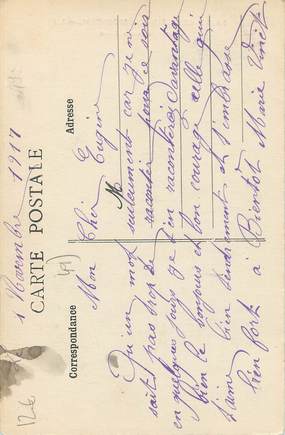 1 Novembre 1917
CARTE POSTALE
Correspondance
Adresse
Mon Cher Eugène
M
Qu'un mot seulement car je ne
sait pas trop de raconter pour ce soir
en quelques jours je t'en raconterai davantage
bien le bonjour et bon courage celle qui
t'aime bien tendrement et t'embrasse
bien fort à Bientôt Marie